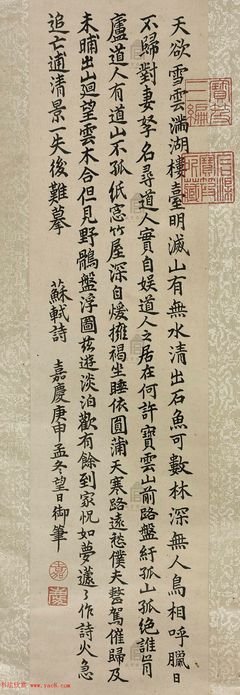 天欲雪雲滿湖樓臺明滅山有無水清出石魚可數林深無人鳥相呼臘日
不歸對妻孥名尋道人實自娛道人之居在何許寶雲山前路盤紆孤山孤絕誰肯
廬道人有道山不孤紙窓竹屋深自煖擁褐坐睡依圓蒲天寒路遠愁僕夫整駕催歸及
未晡出山迴望雲木合但見野鶻盤浮圖茲遊淡泊歡有餘到家怳如夢蘧〻作詩火急
追亡逋清景一失後難摹
蘇軾詩 嘉慶庚申孟冬望日御筆
嘉
慶
寶笈
三編
石渠
寶笈
所藏
www.yac8.com